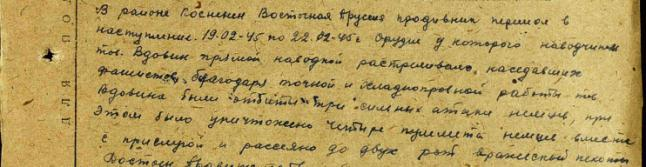 В районе Восточная Пруссия противник перешол в
наступление. 19.02-45 по 22.02-45г Орудие у которого наводчиком
тов. Вдовин прямой наводкой растреливало, наседавших
фашистов, благодаря точной и хладнокровной работы тов
Вдовина были отбиты три сильных атаки немцев, при
этом было уничтожено четыре пулемета немцев вместе
с прислугой и рассеяно до двух рот вражеской пехоты
ДЛЯ ПО